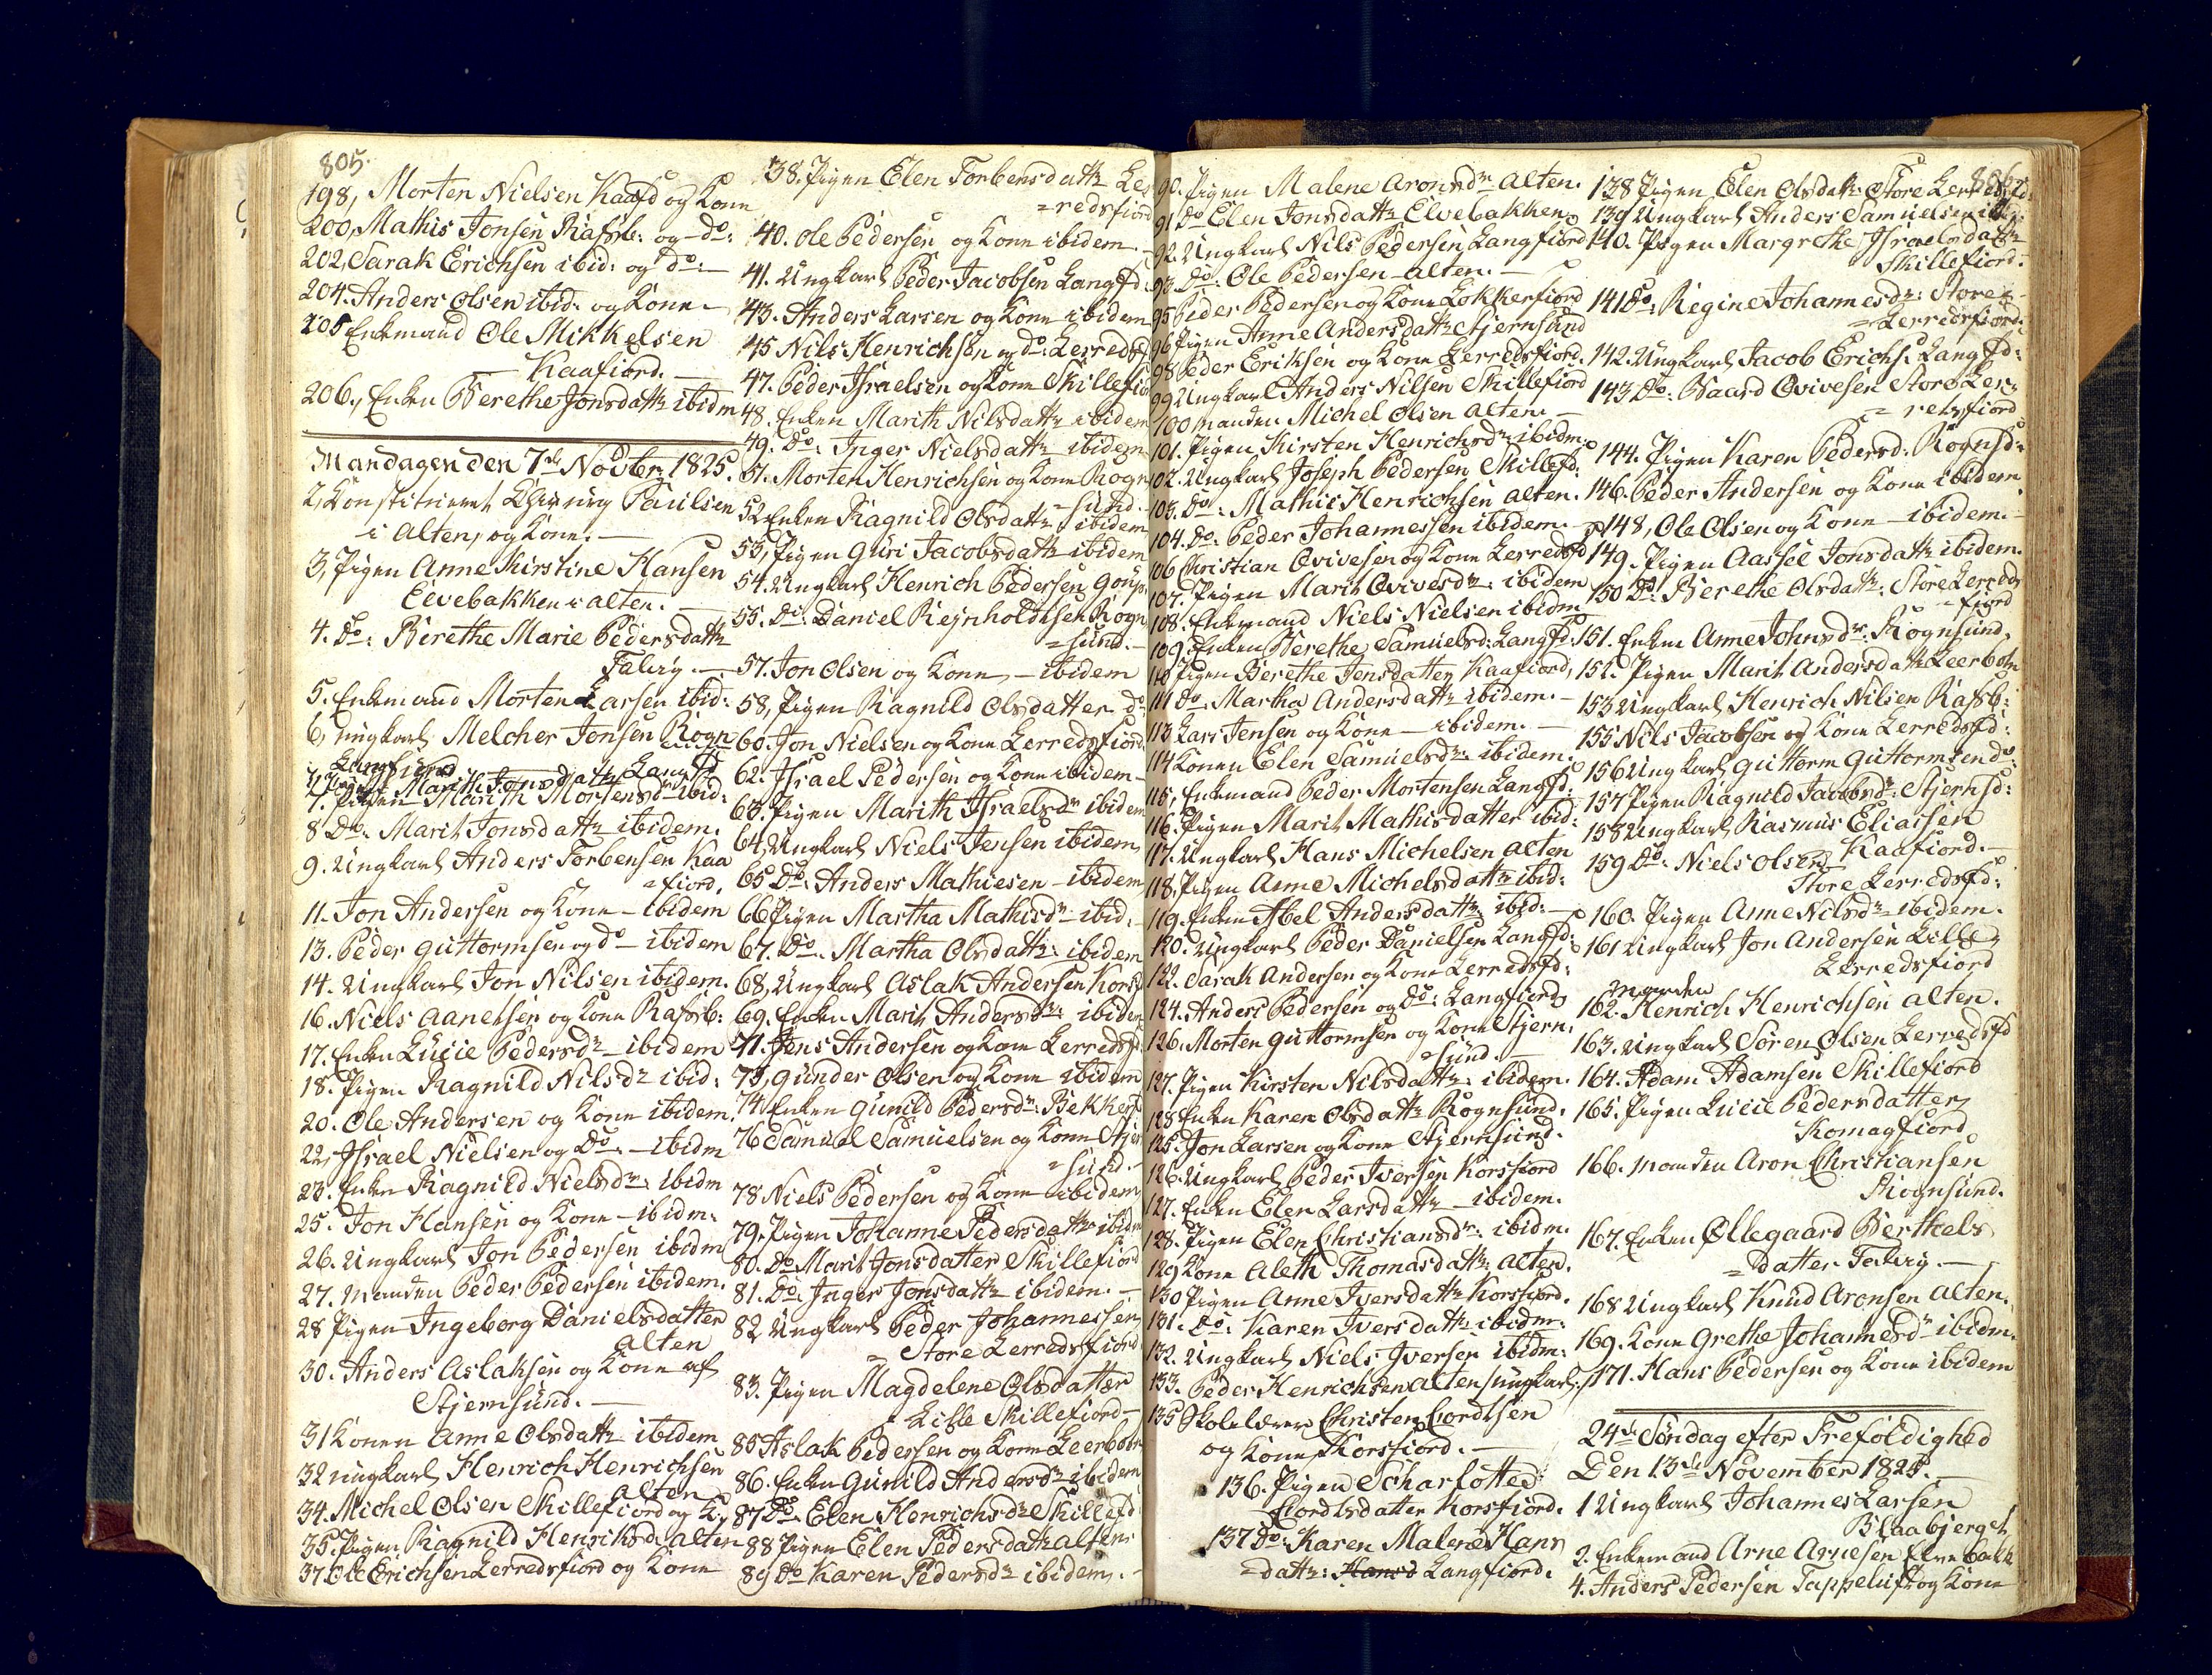 805.
198, Morten Nielsen Kaafd og Kone
200, Mathis Jonsen Rafsb: og do:
202, Sarak Erichsen ibid: og do:
204. Anders Olsen ibid: og Kone
205 Enkemand Ole Mikkelsen
Kaafiord.
206., Enken Berethe Jonsdattr ibidm
Mandagen den 7de Novbr: 1825.
2, Konstitueret Paulsen
i Alten, og Kone.
3, Pigen Anne Kirstine Hansen
Elvebakken i Alten.
4. Do: Berethe Marie Pedersdattr
Talvig.
5. Enkemand Morten Larsen ibid:
6, Ungkarl Melcher Jonsen Rogn
Langfiord
7. Pigen Marith Jonsdattr Langfd
7. Pigen Marith Mortensdr ibid:
8 Do: Marit Jonsdattr ibidem.
9. Ungkarl Anders Torbensen Kaa
=fiord.
11. Jon Andersen og Kone – ibidem
13. Peder Guttormsen og do – ibidem
14. Ungkarl Jon Nilsen ibidem.
16. Niels Aanensen og Kone Rafsb:
17. Enken Lucie Pedersdr – ibidem
18. Pigen Ragnild Nilsdr ibid:
20. Ole Andersen og Kone ibidem.
22, Israel Nielsen og Do: – ibidm
23. Enken Ragnild Nielsdr: ibidm
25. Jon Hansen og Kone – ibidm:
26. Ungkarl Jon Pedersen ibidm
27. Manden Peder Pedersen ibidem.
28 Pigen Ingeborg Danielsdatter
Alten
30. Anders Aslaksen og Kone af
Stjernsund.
31 Konen Anne Olsdattr ibidem
32 Ungkarl Henrich Henrichsen
Alten
34. Michel Olsen Skillefiord og K.
35. Pigen Ragnild Henriksd: Alten
37. Ole Erichsen Lerredsfiord og Kone
38. Pigen Elen Torbensdattr Ler
=redsfiord
40. Ole Pedersen og Kone ibidem.
41. Ungkarl Peder Jacobsen Langfd:
43. Anders Larsen og Kone ibidem
45 Nils Henrichsen og do: Lerredsfd
47. Peder Israelsen og Kone Skillefio
48. Enken Marith Nilsdattr ibidem
49. Do: Inger Nielsdattr ibidem
51. Morten Henrichsen og Kone Rogn
=sund.
52 Enken Ragnild Olsdattr ibidem
53, Pigen Guri Jacobsdattr ibidem
54. Ungkarl Henrich Pedersen
55. Do: Daniel Rejnholdtsen Rogn
=sund.
57. Jon Olsen og Kone – ibidem
58, Pigen Ragnild Olsdatter do:
60. Jon Nielsen og Kone Lerredsfiord
62. Israel Pedersen og Kone ibidem
63. Pigen Marith Israelsdr ibidem
64, Ungkarl Niels Jensen ibidem
65 Do: Anders Mathiesen – ibidem
66 Pigen Martha Mathisdr – ibid.
67. Do. Martha Olsdattr: ibidem
68, Ungkarl Aslak Andersen Korsf
69. Enken Marit Andersdr: ibidem
71. Jens Andersen og Kone Lerredsfd
73, Gunder Olsen og Kone ibidem
74 Enken Gunild Pedersdr: Bekkerf
76 Samuel Samuelsen og Kone Stjer
=sund.
78 Niels Pedersen og Kone ibidem
79. Pigen Johanne Pedersdattr ibidm
80. Do Marit Jonsdatter Skillefiord
81. Do: Inger Jonsdattr ibidem.
82 Ungkarl Peder Johannessen
Store Lerredsfiord
83. Pigen Magdelene Olsdatter
Lille Skillefiord
85 Aslak Pedersen og Kone Leerbotn
86. Enken Gunild Andersdr ibidem
87 Do. Elen Henrichsdr Skillefd
88 Pigen Elen Pedersdattr Alten
89 Do Karen Pedersdr ibidem.
90. Pigen Malene Aronsdr Alten.
91 Do Elen Jonsdattr Elvebakken
92. Ungkarl Nils Pedersen Langfiord
93. Do: Ole Pedersen – Alten.
95 Peder Pedersen og Kone Lokkerfiord
96 Pigen Anne Andersdattr Stjernsund
98 Peder Eriksen og Kone Lerredsfiord.
99 Ungkarl Anders Nilsen Skillefiord
100 Manden Michel Olsen Alten.
101. Pigen Kirsten Henrichsdr ibidm:
102. Ungkarl Joseph Pedersen Skillefd:
103. Do: Mathis Henrichsen Alten.
104. Do: Peder Johannessen ibidem.
106 Christian Qvivesen og Kone Lerredsfd
107. Pigen Marit Qvivesdr: ibidem
108. Enkemand Niels Nielsen ibidm
109. Enken Berethe Samuelsd: Langfd:
110 Pigen Berethe Jensdatter Kaafiord,
111 Do. Martha Andersdattr ibidem.
113 Lars Jensen og Kone – ibidem.
114 Konen Elen Samuelsdr: ibidem.
115, Enkemand Peder Mortensen Langfd:
116. Pigen Marit Mathisdatter ibid:
117. Ungkarl Hans Michelsen Alten
118, Pigen Anne Michelsdattr ibid:
119. Enken Abel Andersdattr: ibid:
120. Ungkarl Peder Danielsen Langfd:
122. Sarak Andersen og Kone Lerredsfd:
124. Anders Pedersen og Do: Langfiord
126. Morten Guttormsen og Kone Stjern:
=sund.
127. Pigen Kirsten Nilsdattr: ibidem.
128 Enken Karen Olsdattr Rognsund.
125. Jon Larsen og Kone Stjernsund.
126. Ungkarl Peder Iversen Korsfiord
127. Enken Elen Larsdattr – ibidem.
128. Pigen Elen Christiansdr: ibidm.
129 Kone Aleth Thomasdattr: Alten.
130 Pigen Anne Iversdattr Korsfiord.
131. Do: Karen Iversdattr ibidm:
132. Ungkarl Niels Iversen ibidm:
133. Peder Henrichsen Alten /ungkarl:/
135 Skolelærer Christen Cordtsen
og Kone, Korsfiord.
136. Pigen Scharlotte
Cordtsdatter Korsfiord.
137 Do: Karen Malene Hans
=dattr: Hansd Langfiord.
138 Pigen Elen Olsdattr Store Lerredsfd:
139 Ungkarl Anders Samuelsen
140. Pigen Margrethe Israelsdattr
Skillefiord.
141 Do: Regine Johannesdr: Store
=Lerredsfiord.
142. Ungkarl Jacob Erichs: Langfd:
143 Do: Baard Qvivesen Store Ler=
=retsfiord
144. Pigen Karen Pedersd: Rognsd:
146. Peder Andersen og Kone ibidem
148, Ole Olsen og Kone – ibidem.
149. Pigen Aassel Jonsdattr ibidem.
150 Do: Berethe Olsdattr: Store Lerreds
=fiord
151. Enken Anne Johnsdr: Rognsund.
152. Pigen Marit Andersdattr Leerbotn
153 Ungkarl Henrich Nilsen Rafsb:
155 Nils Jacobsen og Kone Lerredsfd:
156 Ungkarl Guttorm Guttormsen do:
157 Pigen Ragnild Jacobsdr: Stjernsd:
158 Ungkarl Rasmus Eliassen
Kaafiord.
159 Do: Niels Olsen
Store Lerredsfd:
160. Pigen Anne Nilsdr – ibidem.
161 Ungkarl Jon Andersen Lille
Lerredsfiord
Manden
162. Henrich Henrichsen Alten.
163. Ungkarl Sören Olsen Lerredsfd
164. Adam Adamsen Skillefiord
165. Pigen Lucie Pedersdatter
Komagfiord
166. Manden Aron Christiansen
Rognsund.
167. Enken Øllegaard Berthels
=datter Talvig.
168 Ungkarl Knud Aronsen Alten.
169. Kone Grethe Johannesdr ibidm.
171. Hans Pedersen og Kone ibidem
24de Søndag efter Trefoldighed
Den 13de November 1825.
1 Ungkarl Johannes Larsen
Blaabjerget
2. Enkemand Arne Arnesen Elvebakk
4. Anders Pedersen Tappeluft og Kone